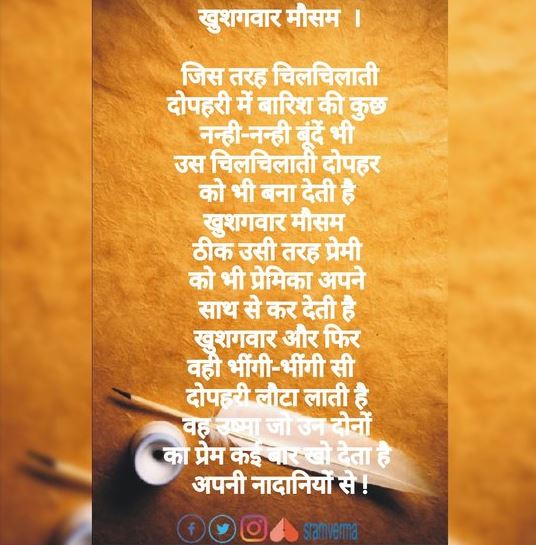 खुशगवार मौसम ।
जिस तरह चिलचिलाती
दोपहरी में बारिश की कुछ
नन्ही-नन्ही बूंदें भी
उस चिलचिलाती दोपहर
को भी बना देती है
खुशगवार मौसम
ठीक उसी तरह प्रेमी
को भी प्रेमिका अपने
साथ से कर देती है
खुशगवार और फिर
वही भींगी-भींगी सी
दोपहरी लौटा लाती है
वह उष्मा जो उन दोनों
का प्रेम कई बार खो देता है
अपनी नादानियों से !
sramverma